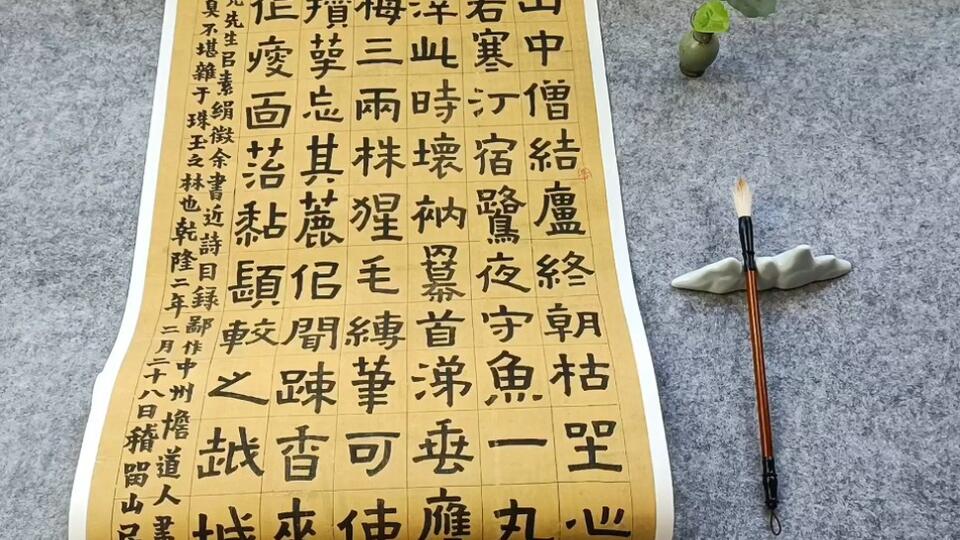 山中僧結廬終朝枯㘴心
若寒汀宿鷺夜守魚一丸
滓此時壞衲羃首涕垂應
梅三兩株猩毛縳筆可使
孳忘其佀聞踈香來
面菭黏較之越城
先生㠯素絹徵余書近詩目録鄙作中州檐道人書
臭不堪雜于珠玉之林也乾隆二年二月二十八日稽留山民